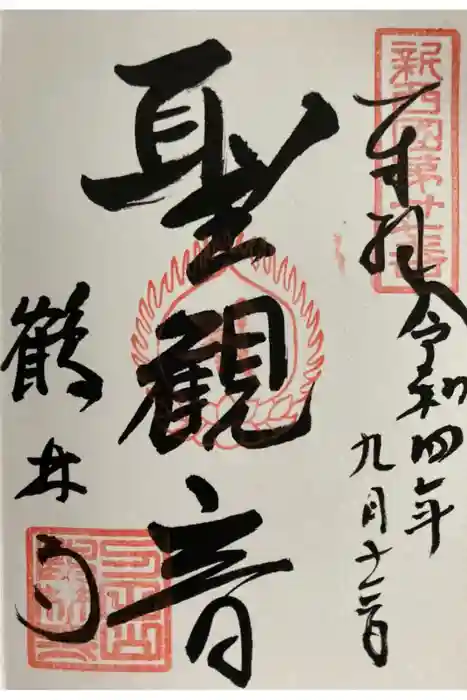 新西國第廿七番
奉拝 令和四年
九月十二日
聖観音
鶴林寺